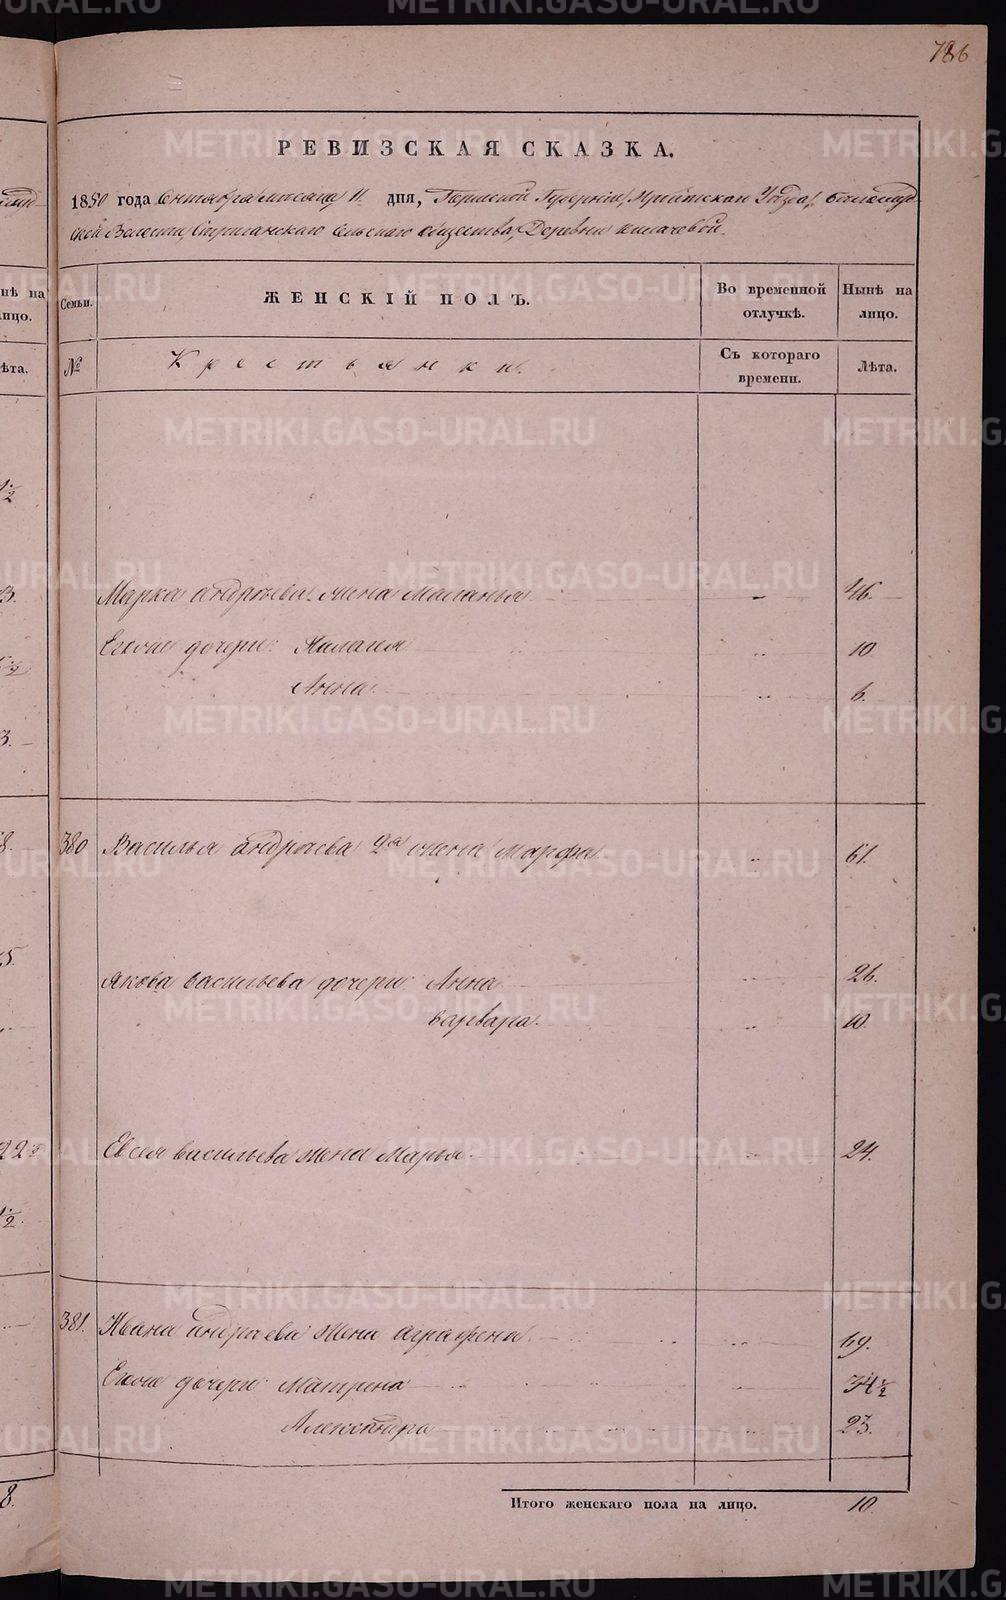 786
РЕВИЗСКАЯ СКАЗКА.
1850 года Сентября месяца 11 дня, Пермской Губернии, Ирбитского Уезда,
ской Волости, сельского общества, Деревни
Семьи.
ЖЕНСКІЙ ПОЛЪ.
Во временной отлучкѣ.
Нынѣ на лицо.
№
Крестьянки.
Съ котораго времени.
Лѣта.
Марка андреева жена Маланья 46.
Егоже дочери: Пилагея 10
Анна 6.
380 Василья андреева 2я жена Марфа 61.
якова васильева дочери: Анна 26.
варвара. 10.
Евсея васильева жена Марья 24.
381. Ивана андреева жена аграфена 69.
Егоже дочери: Матрена 34 1/2
Александра 23.
Итого женскаго пола на лицо. 10.
нѣ на
лицо.
ѣта.
METRIKI.GASO-URAL.RU